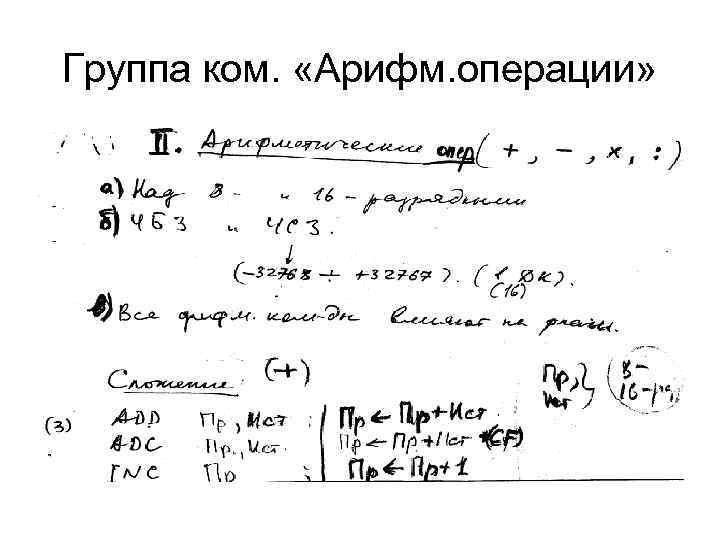 Группа ком. «Арифм.операции»
II. Арифметические опер(+, -, x, :)
а) Над 8- и 16-разрядными
б) ЧБЗ и ЧСЗ.
(-32768 ÷ +32767). (1 ДК).
(16)
в) Все арифм. ком-ды влияют на флаги.
Сложение (+)
Пр, Ист } 8- 16-разр
(3) ADD Пр, Ист | Пр ← Пр+Ист
ADC Пр, Ист. | Пр ← Пр+Ист +(CF)
INC Пр | Пр ← Пр+1